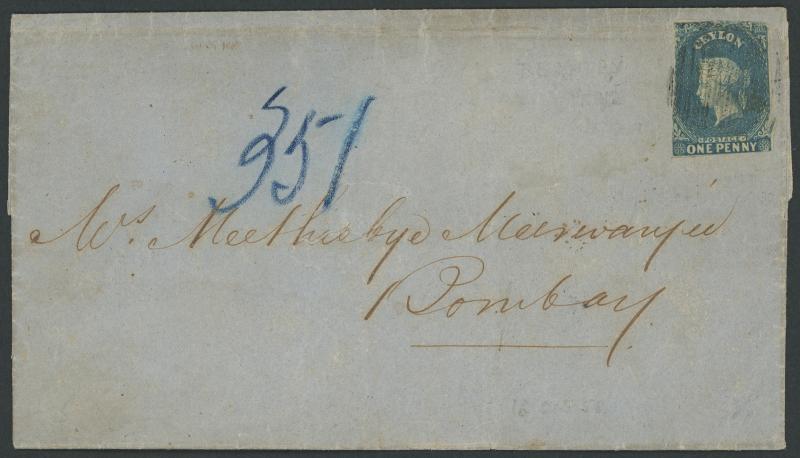 CEYLON
POSTAGE
ONE PENNY
351
Mrs. Meethibhye Merwanjee
Bombay